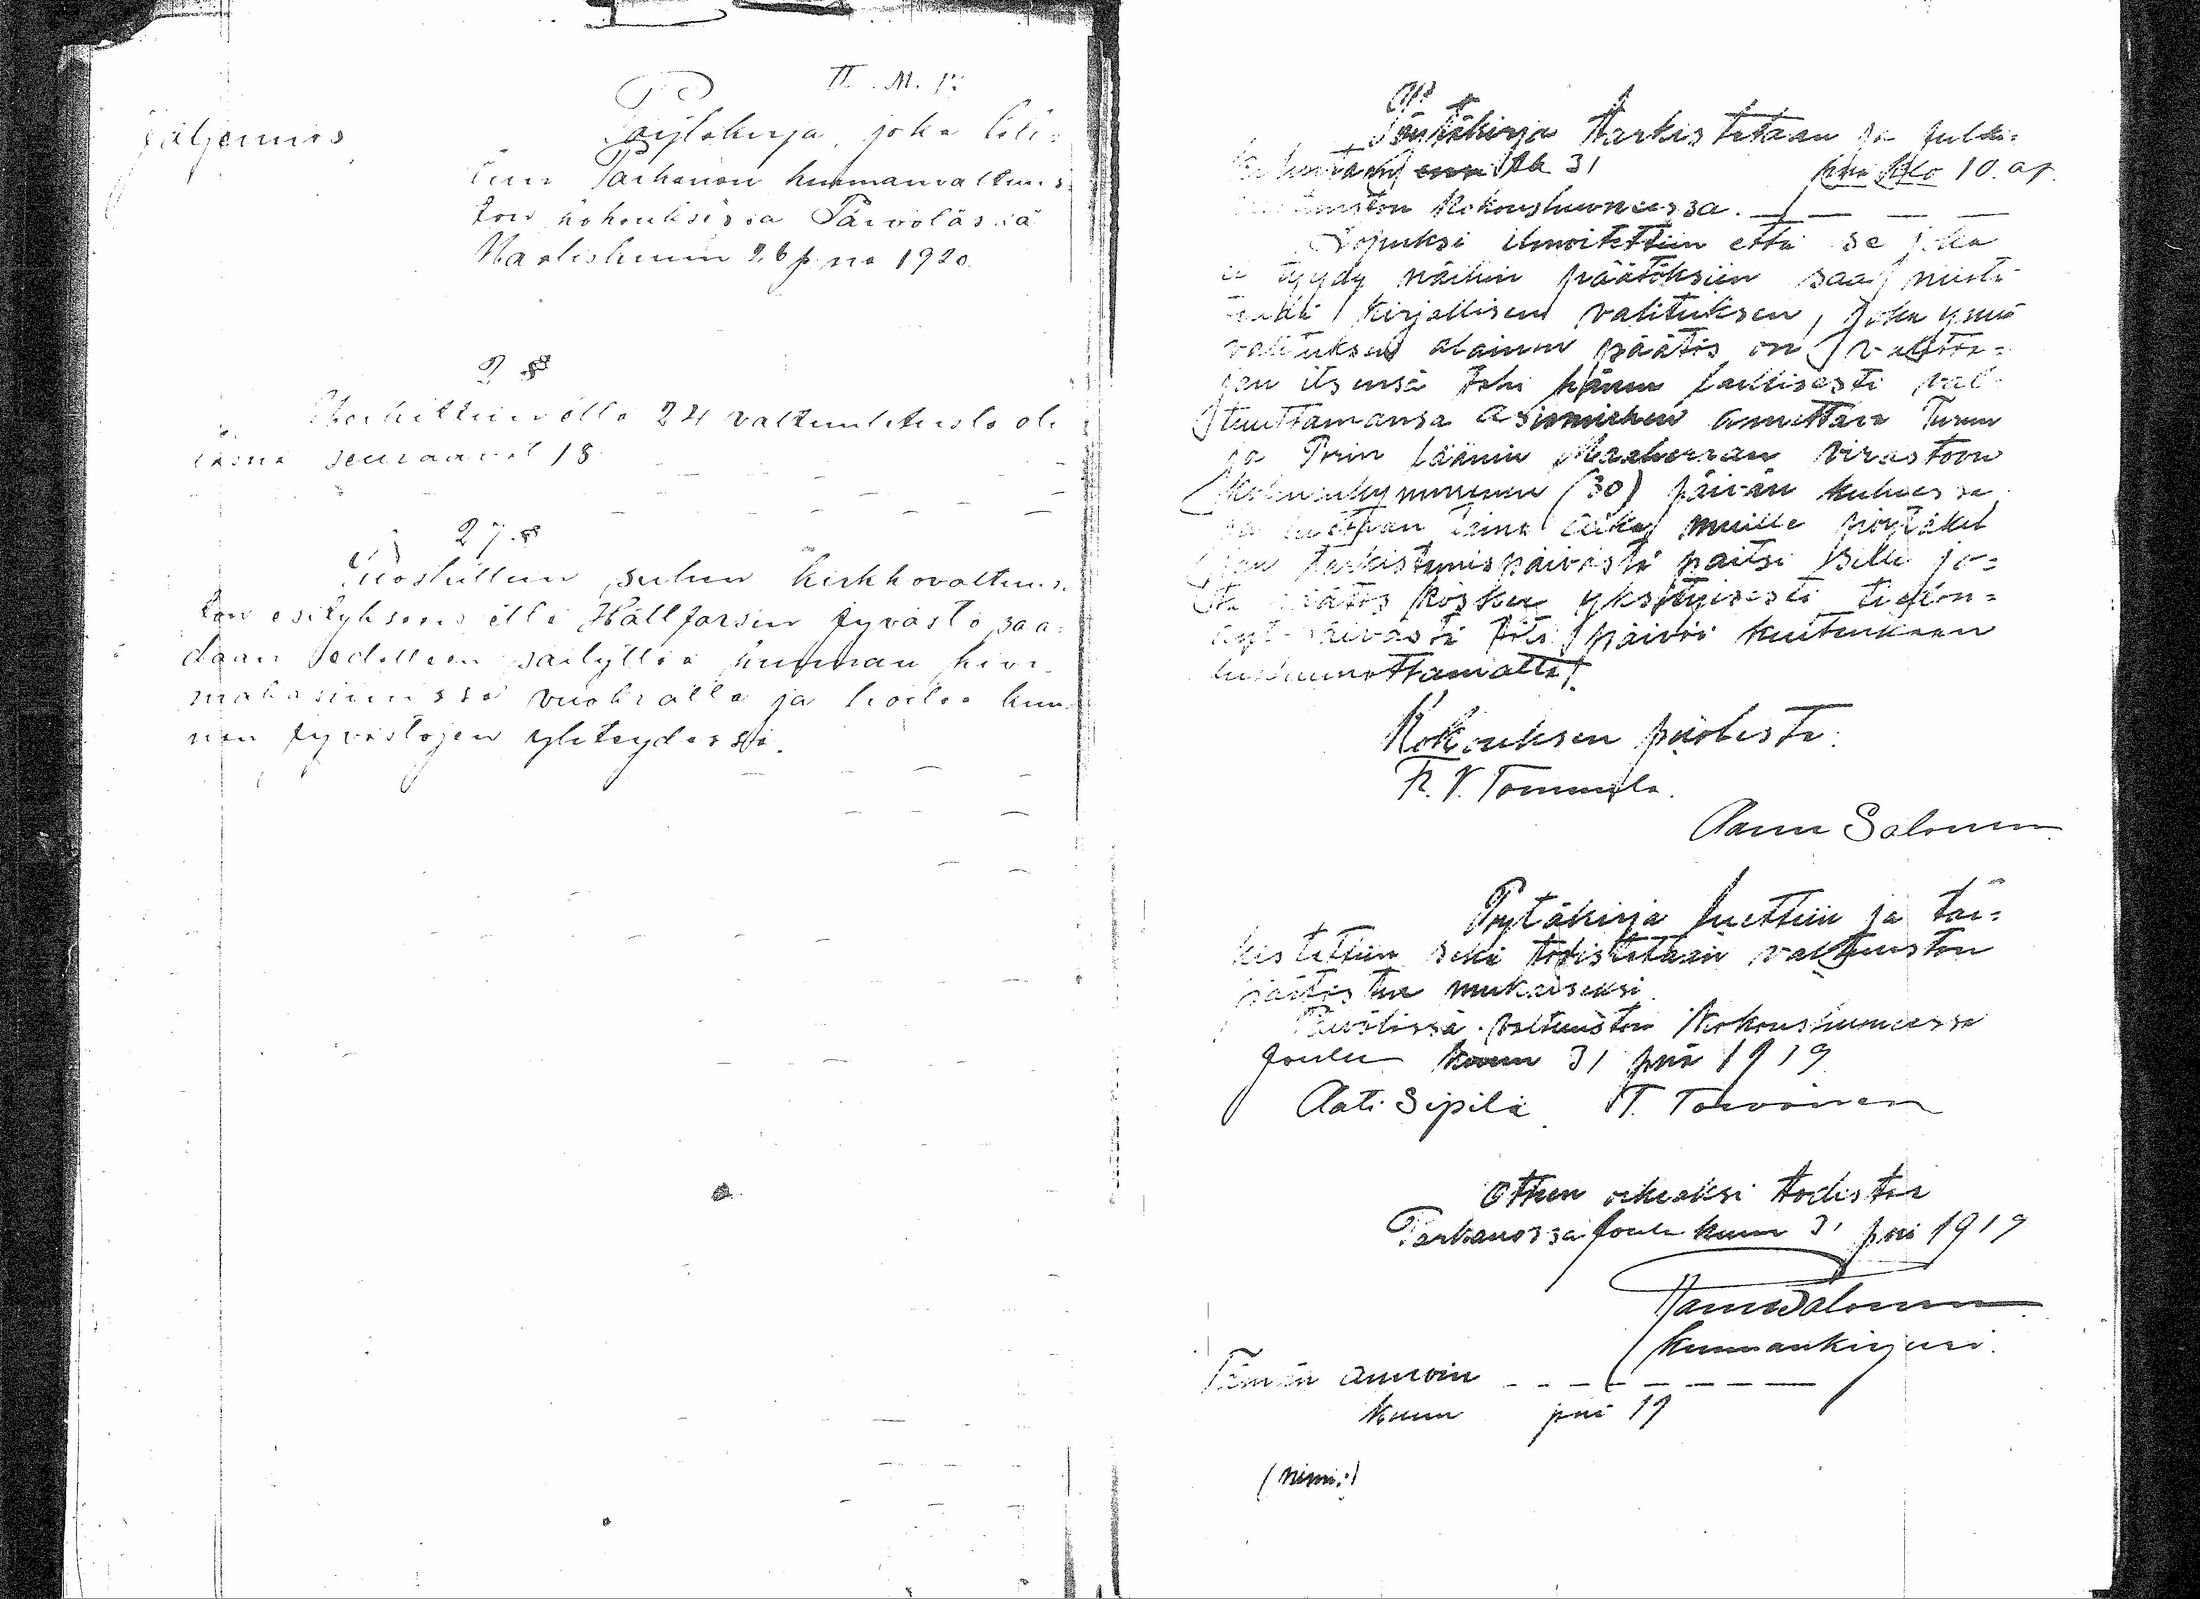 Jäljennös
Pöytäkirja, joka teh-
tiin Parkanon kunnanvaltuus-
ton kokouksessa Päivölässä
Maaliskuun 26 p:nä 1920.
2 §
Merkittiin että 24 valtuutetusta oli
läsnä seuraavat 18
27. §
Suostuttiin sulun kirkkovaltuus-
ton esitykseen että Hällforsin jyvästö saa-
daan edelleen säilyttää kunnan kivi-
makasiinissa vuokralla ja hoitaa kun-
nan jyvästöjen yhteydessä.
Pöytäkirja tarkistetaan ja julki-
31 klo 10. ap.
valtuuston kokoushuoneessa.
Lopuksi ilmoitettiin että se joka
ei tyydy näihin päätöksiin saa niistä
tehdä kirjallisen valituksen, joka ynnä
valituksen alainen päätös on valitta-
jan itsensä tahi hänen laillisesti val-
tuuttamansa asiamiehen annettava Turun
ja Porin läänin Maaherran virastoon
kolmenkymmenen (30) päivän kuluessa
ja luetaan tämä aika muille pöytäkir-
jan tarkistamispäivästä paitsi sille jo-
ta päätös koskee yksityisesti tiedon-
päivästä päivää kuitenkaan
lukuunottamatta.
Kokouksen puolesta:
F. V. Tommila.
Aarne Salonen
Pöytäkirja luettiin ja tar-
kistettiin sekä todistetaan valtuuston
päätösten mukaiseksi.
Päivölässä valtuuston kokoushuoneessa
Joulu kuun 31 pnä 1919
Aati Sipilä T. Toivonen
Otteen oikeaksi todistaa
Parkanossa Joulu kuun 31 pnä 1919
Aarne Salonen
kunnankirjuri.
Tämän annoin
kuun pnä 19
(nimi:)